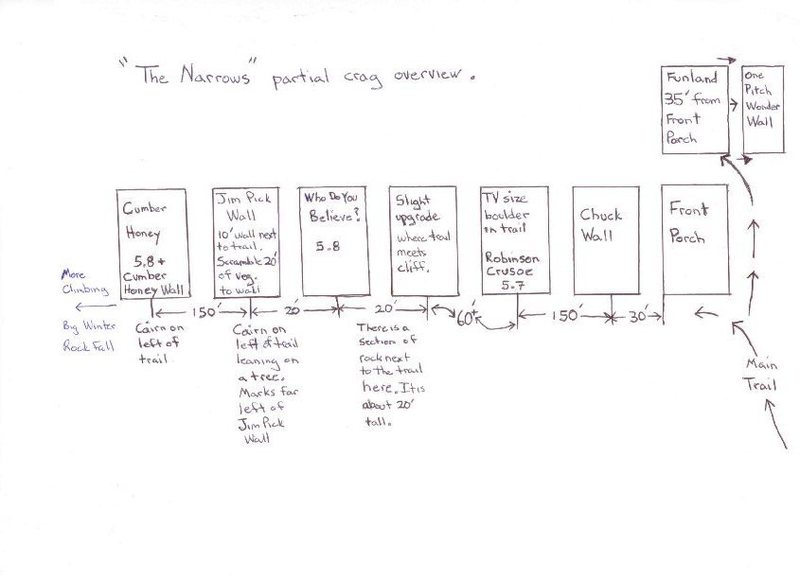 "The Narrows" partial crag overview.
Funland
35' from
Front
Porch
One
Pitch
Wonder
Wall
Cumber
Honey
5.8+
Cumber
Honey Wall
Jim Pick
Wall
10' wall next
to trail.
Scramble 20'
of veg.
to wall
Who Do You
Believe?
5.8
Slight
upgrade
where trail
meets
cliff.
TV size
boulder
in trail
Robinson
Crusoe
5.7
Chuck
Wall
Front
Porch
More
Climbing
Big Winter
Rock Fall
150'
20'
20'
60'+
150'
30'
Cairn on
left of
trail
Cairn on
left of trail
leaning on
a tree.
Marks far
left of
Jim Pick
Wall
There is a
section of
rock next
to the trail
here. It is
about 20'
tall.
Main
Trail